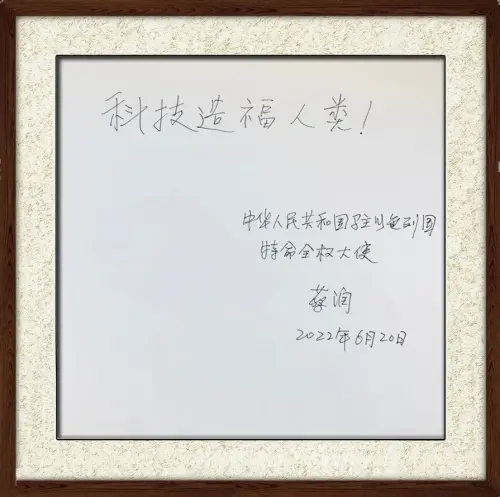 科技造福人类！
中华人民共和国驻以色列国
特命全权大使
蔡润
2022年6月20日